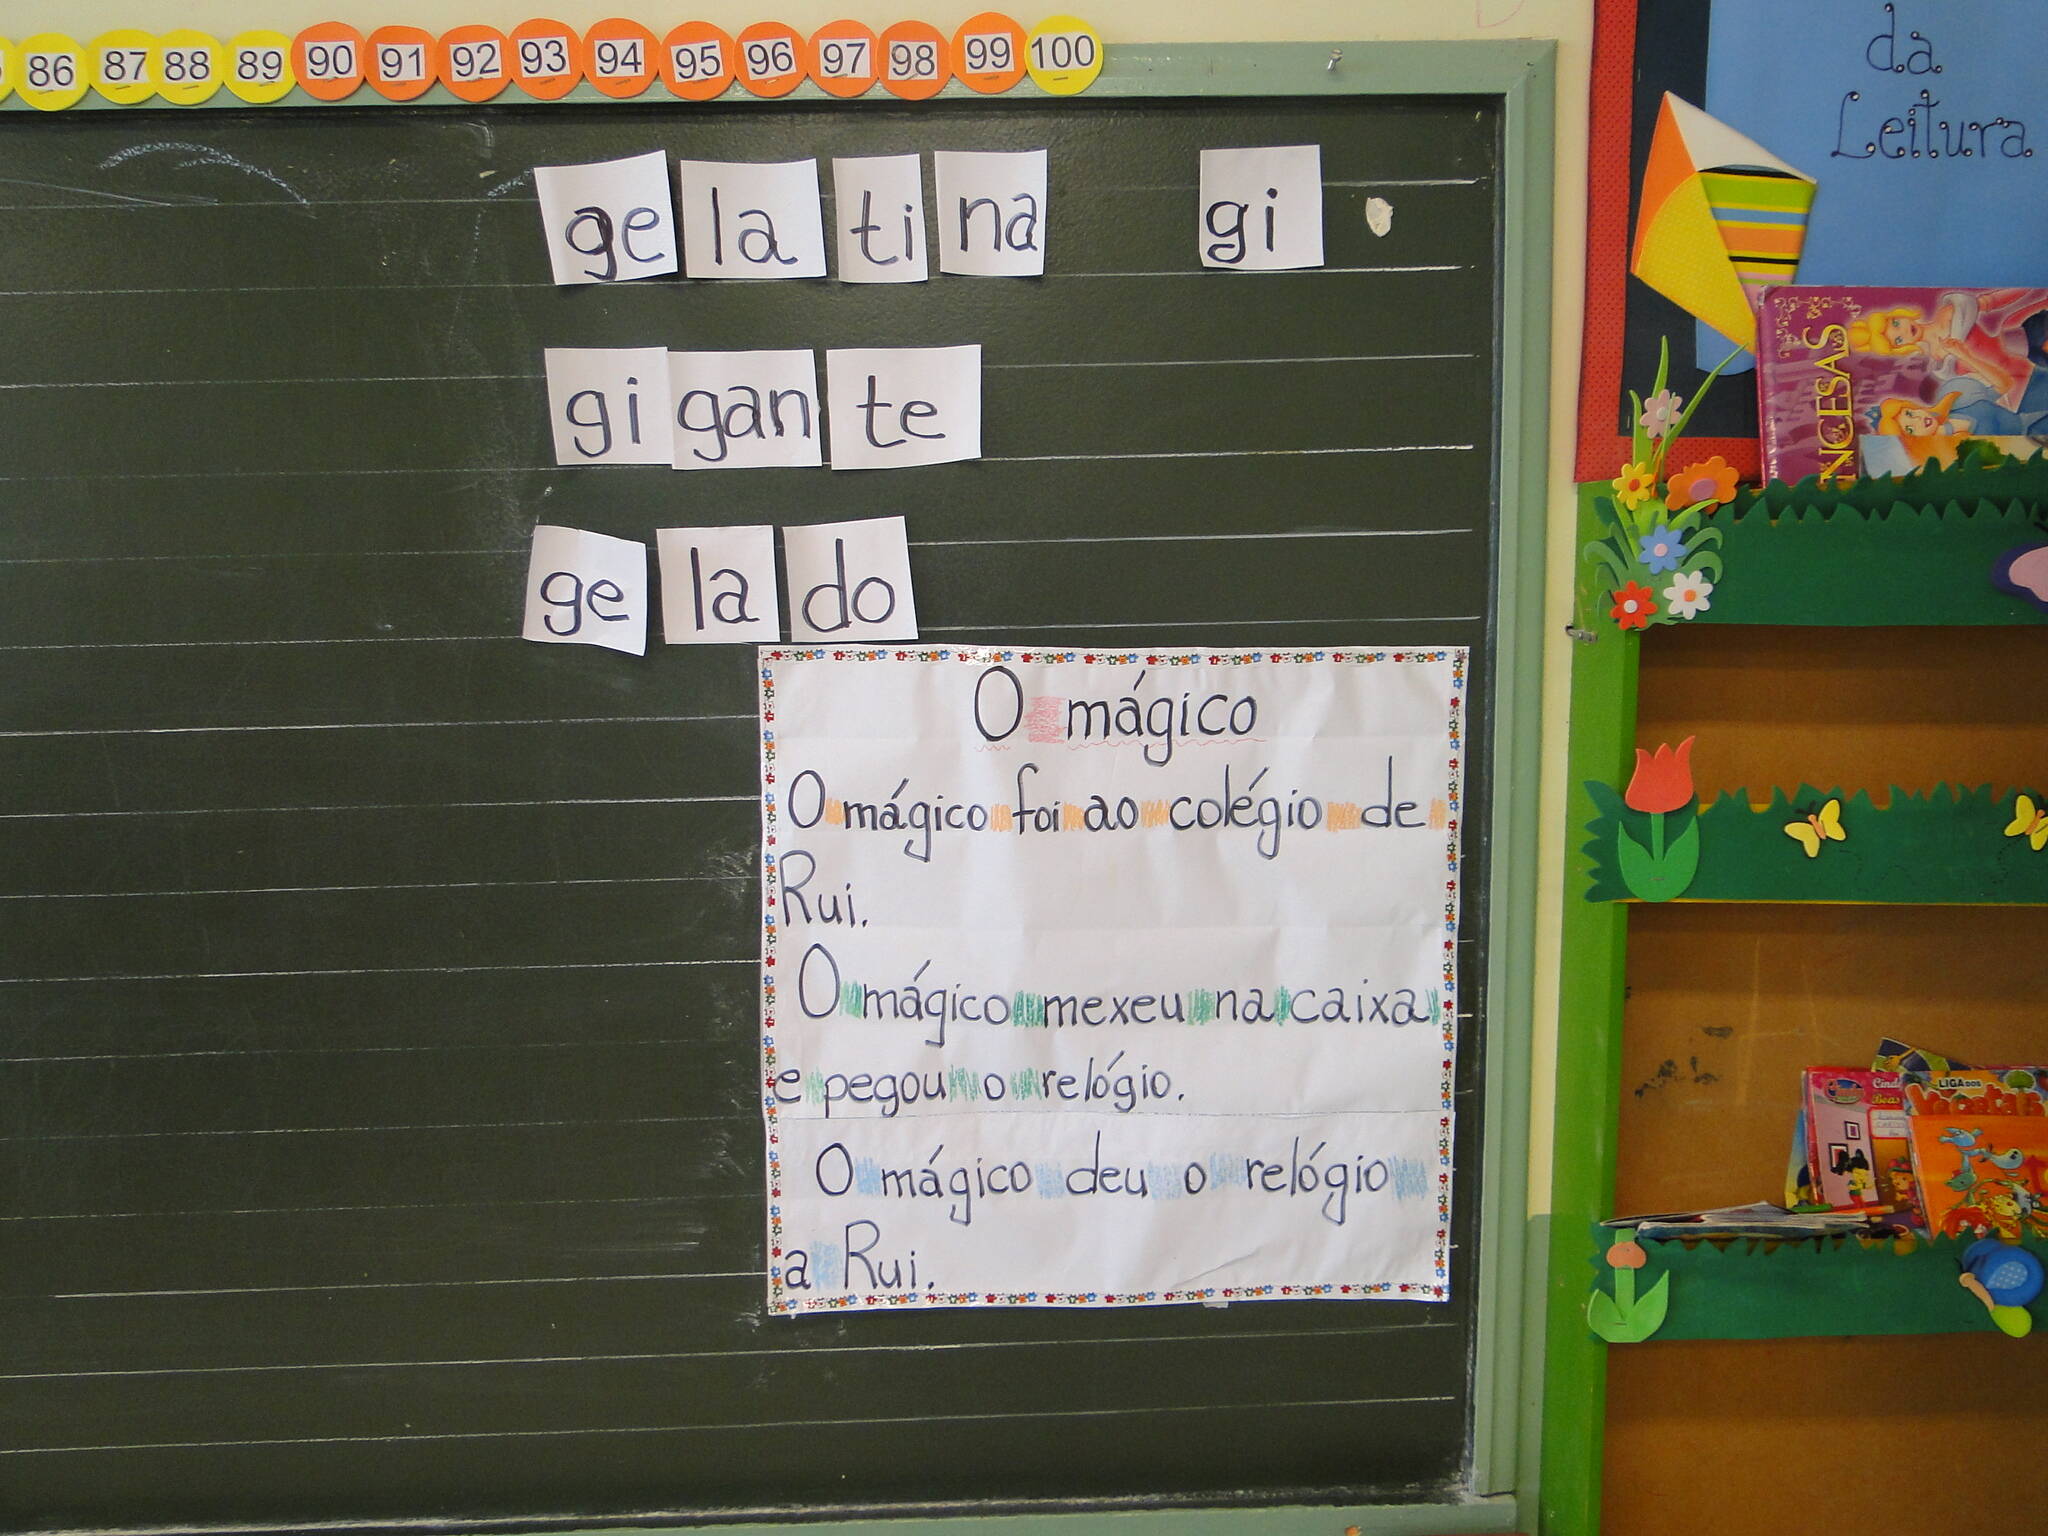 86 87 88 89 90 91 92 93 94 95 96 97 98 99 100
ge la ti na gi
gi gan te
ge la do
O mágico
O mágico foi ao colégio de
Rui.
O mágico mexeu na caixa
e pegou o relógio.
O mágico deu o relógio
a Rui.
da
Leitura
NCESAS
LIGADOS